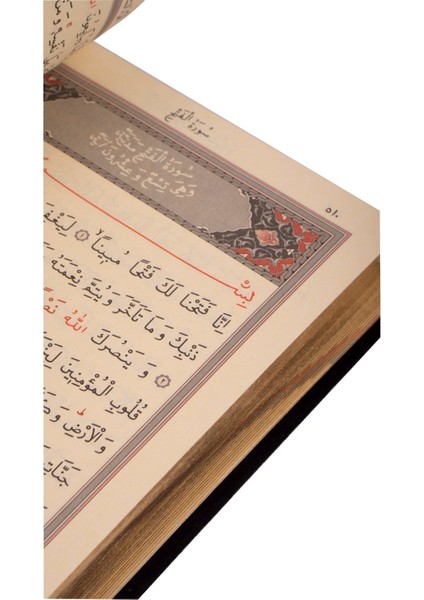 سُورَةُ الْفَتْحِ
٥١٠
سُورَةُ الْفَتْحِ مَدَنِيَّةٌ
وَهِيَ تِسْعٌ وَعِشْرُونَ
بِسْ
اِنَّا فَتَحْنَا لَكَ فَتْحًا مُبِينًا ﴿١﴾ لِيَغْفِ
ذَنْبِكَ وَمَا تَاَخَّرَ وَيُتِمَّ نِعْمَتَهُ
﴿٢﴾ وَيَنْصُرَكَ اللّٰهُ نَصْ
قُلُوبِ الْمُؤْمِنِينَ لِيَزْ
وَالْاَرْضِ وَ
جَنَّاتٍ